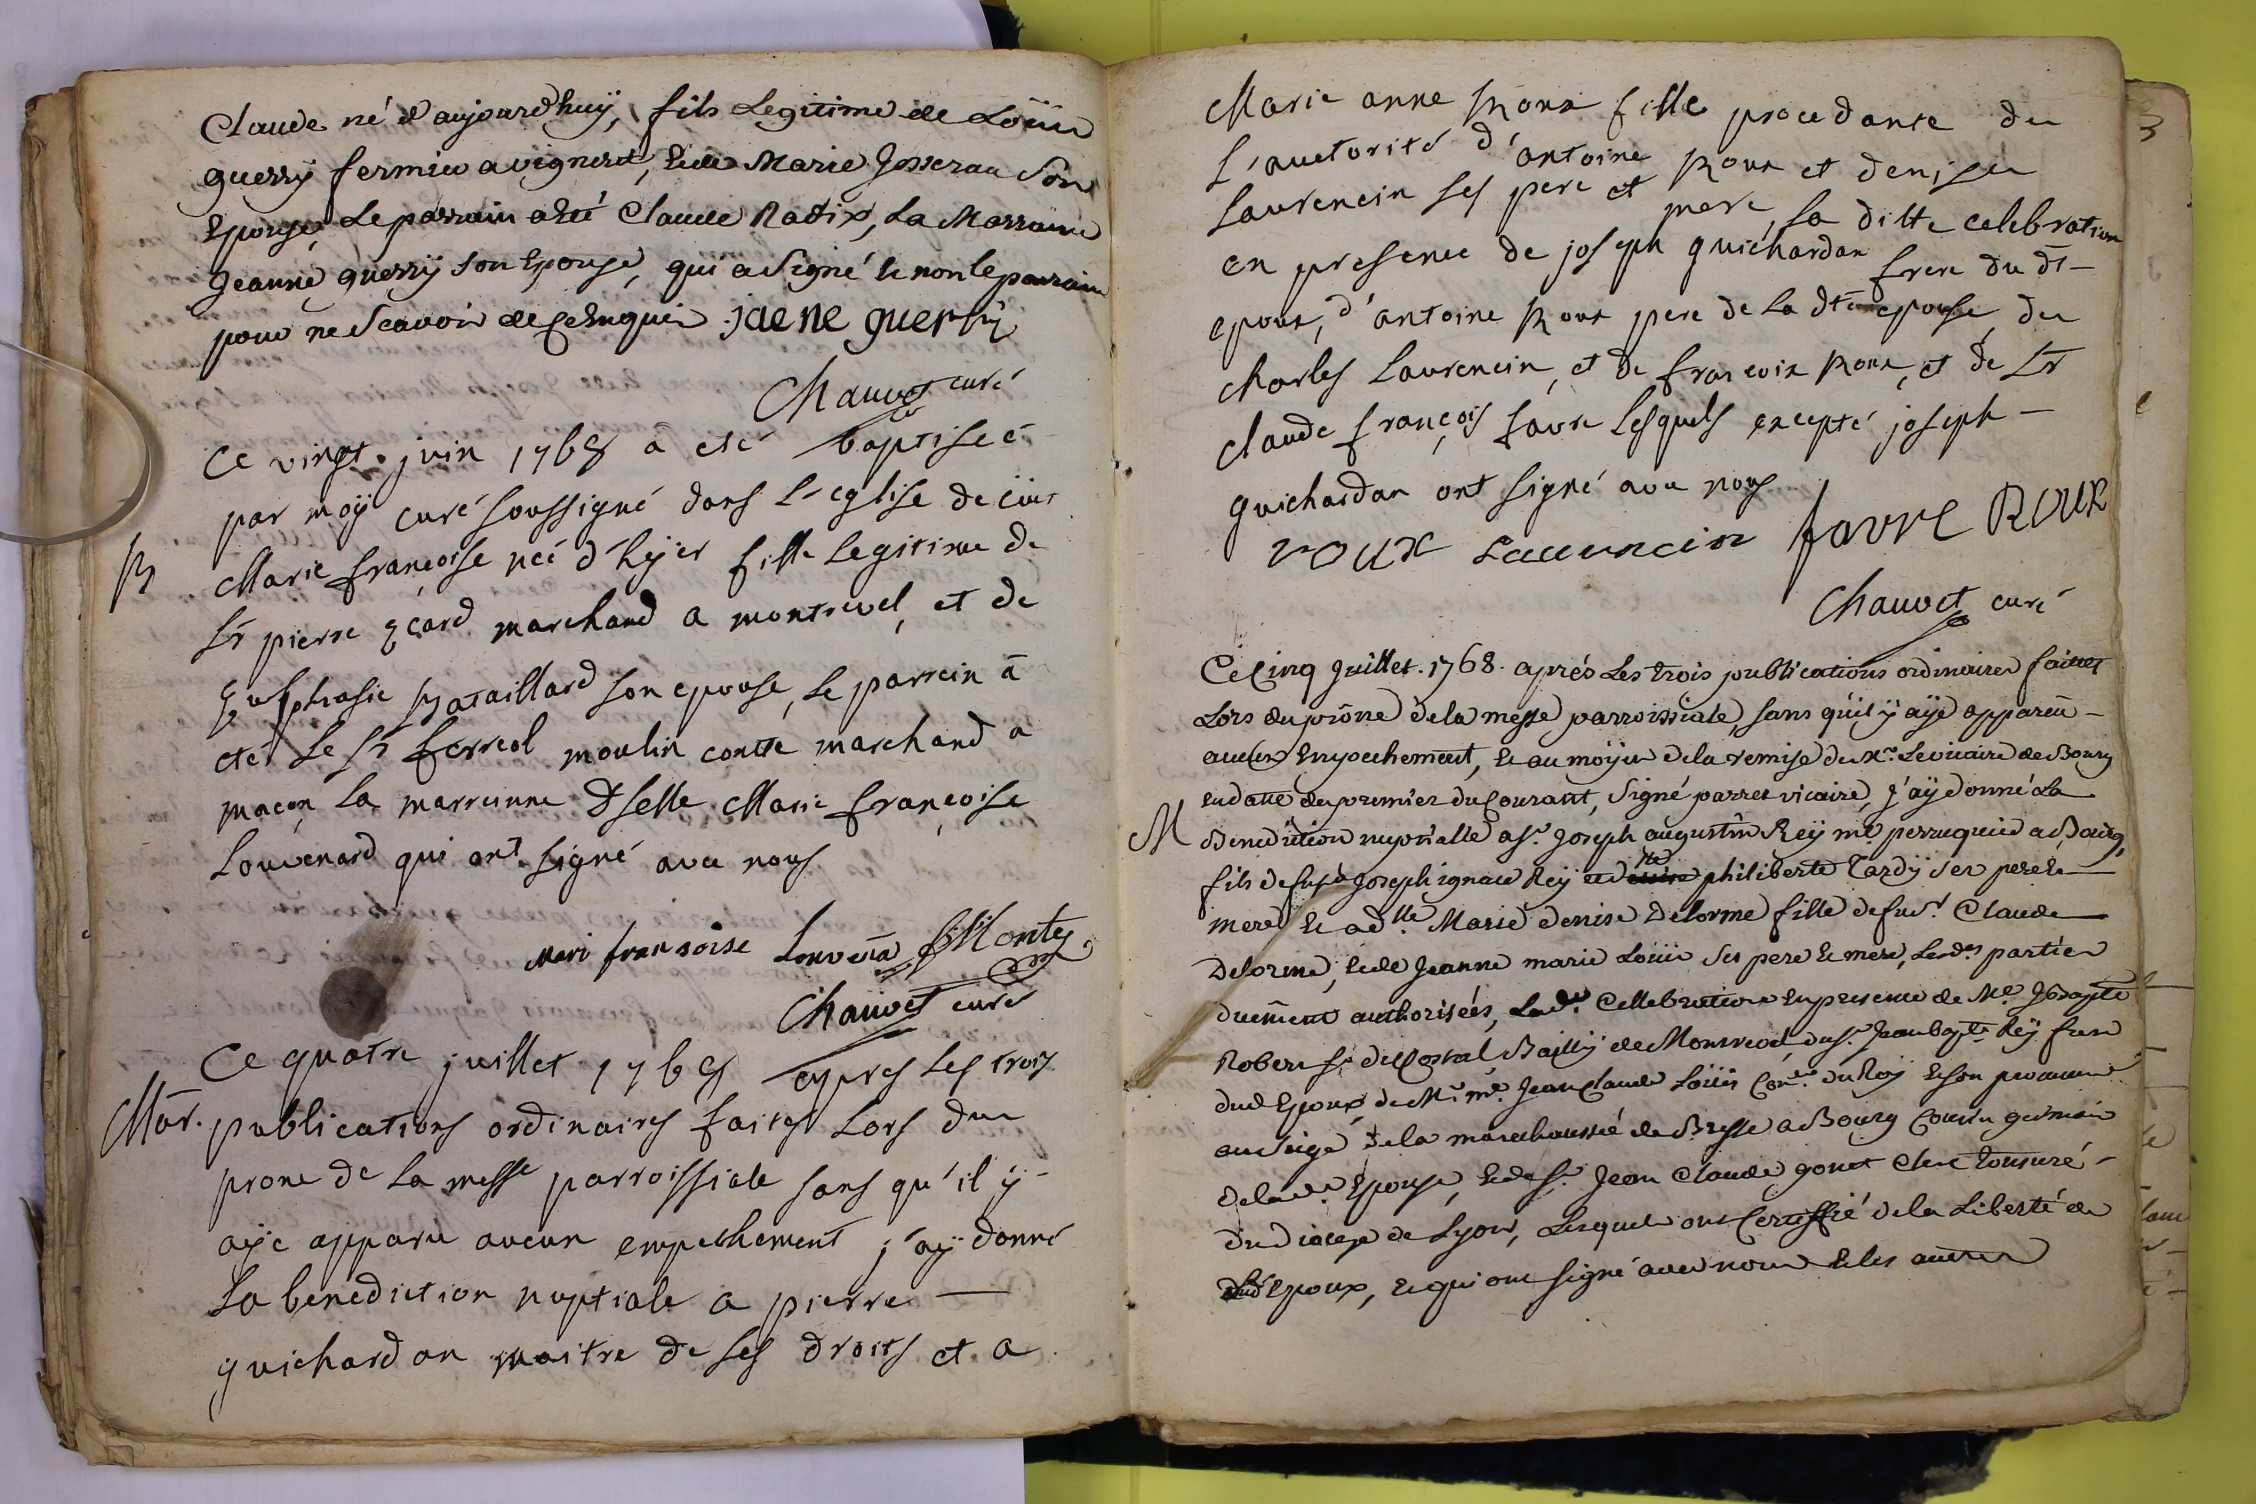 Claude né d'aujourdhuÿ, fils Legitime de Loüis
guerrÿ fermier a vigneret, & de Marie Josserau son
Epouse, Le parrain a Eté Claude Radix, La Marraine
Jeanne guerrÿ son Epouse, qui a signé & non le parrain
pour ne scavoir de ce Enquis. jaene guerrÿ
Chauvet curé
B
Ce vingt. juin 1768 a eté baptiseé
par moÿ curé soussigné dans L'eglise de
Marie françoise neé d'hÿer fille Legitime de
Sr pierre gcard marchand a montrevel, et de
Euphrasie Bataillard son epouse, Le parrein a
eté Le Sr ferreol moulin conte marchand a
macon La marreinne Dselle Marie françoise
Louvenard qui ont signé avec nous
Mari fransoise Louvena Monty
Chauvet curé
Mar.
Ce quatre juillet 1768 apres Les trois
publications ordinaires faites Lors du
prone de La messe parroissiale sans qu'il ÿ
aÿe apparu aucun empechement j'aÿ donné
La benediction nuptiale a pierre —
guichardan maitre de ses droits et a
Marie anne Roux fille procedante de
L'auctorité d'antoine Roux et denise
Laurencin ses pere et mere, La ditte celebration
en presence de joseph guichardan frere du dt —
epoux, d'antoine Roux pere de La dte epouse, de
charles Laurencin, et de francoix Roux, et de Sr
claude françois favre Lesquels excepté joseph —
guichardan ont signé avec nous
roux Laurencin favre ROUX
Chauvet curé
M
Ce Cinq Juillet. 1768. aprés Les trois publications ordinaires faittes
Lors du prône de la messe parroissiale, sans qu'il ÿ aÿe apparcu —
aucun Empechement, & au moÿen de la remise de Mr. Le vicaire de Bourg
en datte du premier du Courant, Signé parret vicaire, J'aÿ donné La
Benediction nuptialle a Sr. Joseph augustin Reÿ me. perruquier a Bourg,
fils de fu Sr Joseph ignace Reÿ et dlle philiberte Tardÿ ses pere &
mere & a dlle. Marie denise Delorme fille de fu Sr. Claude
Delorme, & de Jeanne marie Loüis ses pere & mere, Lesdes parties
duement authoriseés, Lade. Cellebration En presence de Me. Jbaspte
Robert Sr delCostal Bailly de Montrevel, du Sr. Jean bapte. Reÿ frere
dud Epoux, de Mr. me. Jean Claude Loüis Coner. du Roÿ & son procureur
au siege de la marechaussée de Bresse a Bourg Cousin germain
de lade. Epouse, & de Sr. Jean Claude gonet Clerc tonsuré —
du diocese de Lyon, Lesquels ont Certiffié de la Liberté de
dud Epoux, & qui ont signé avec nous & les autres